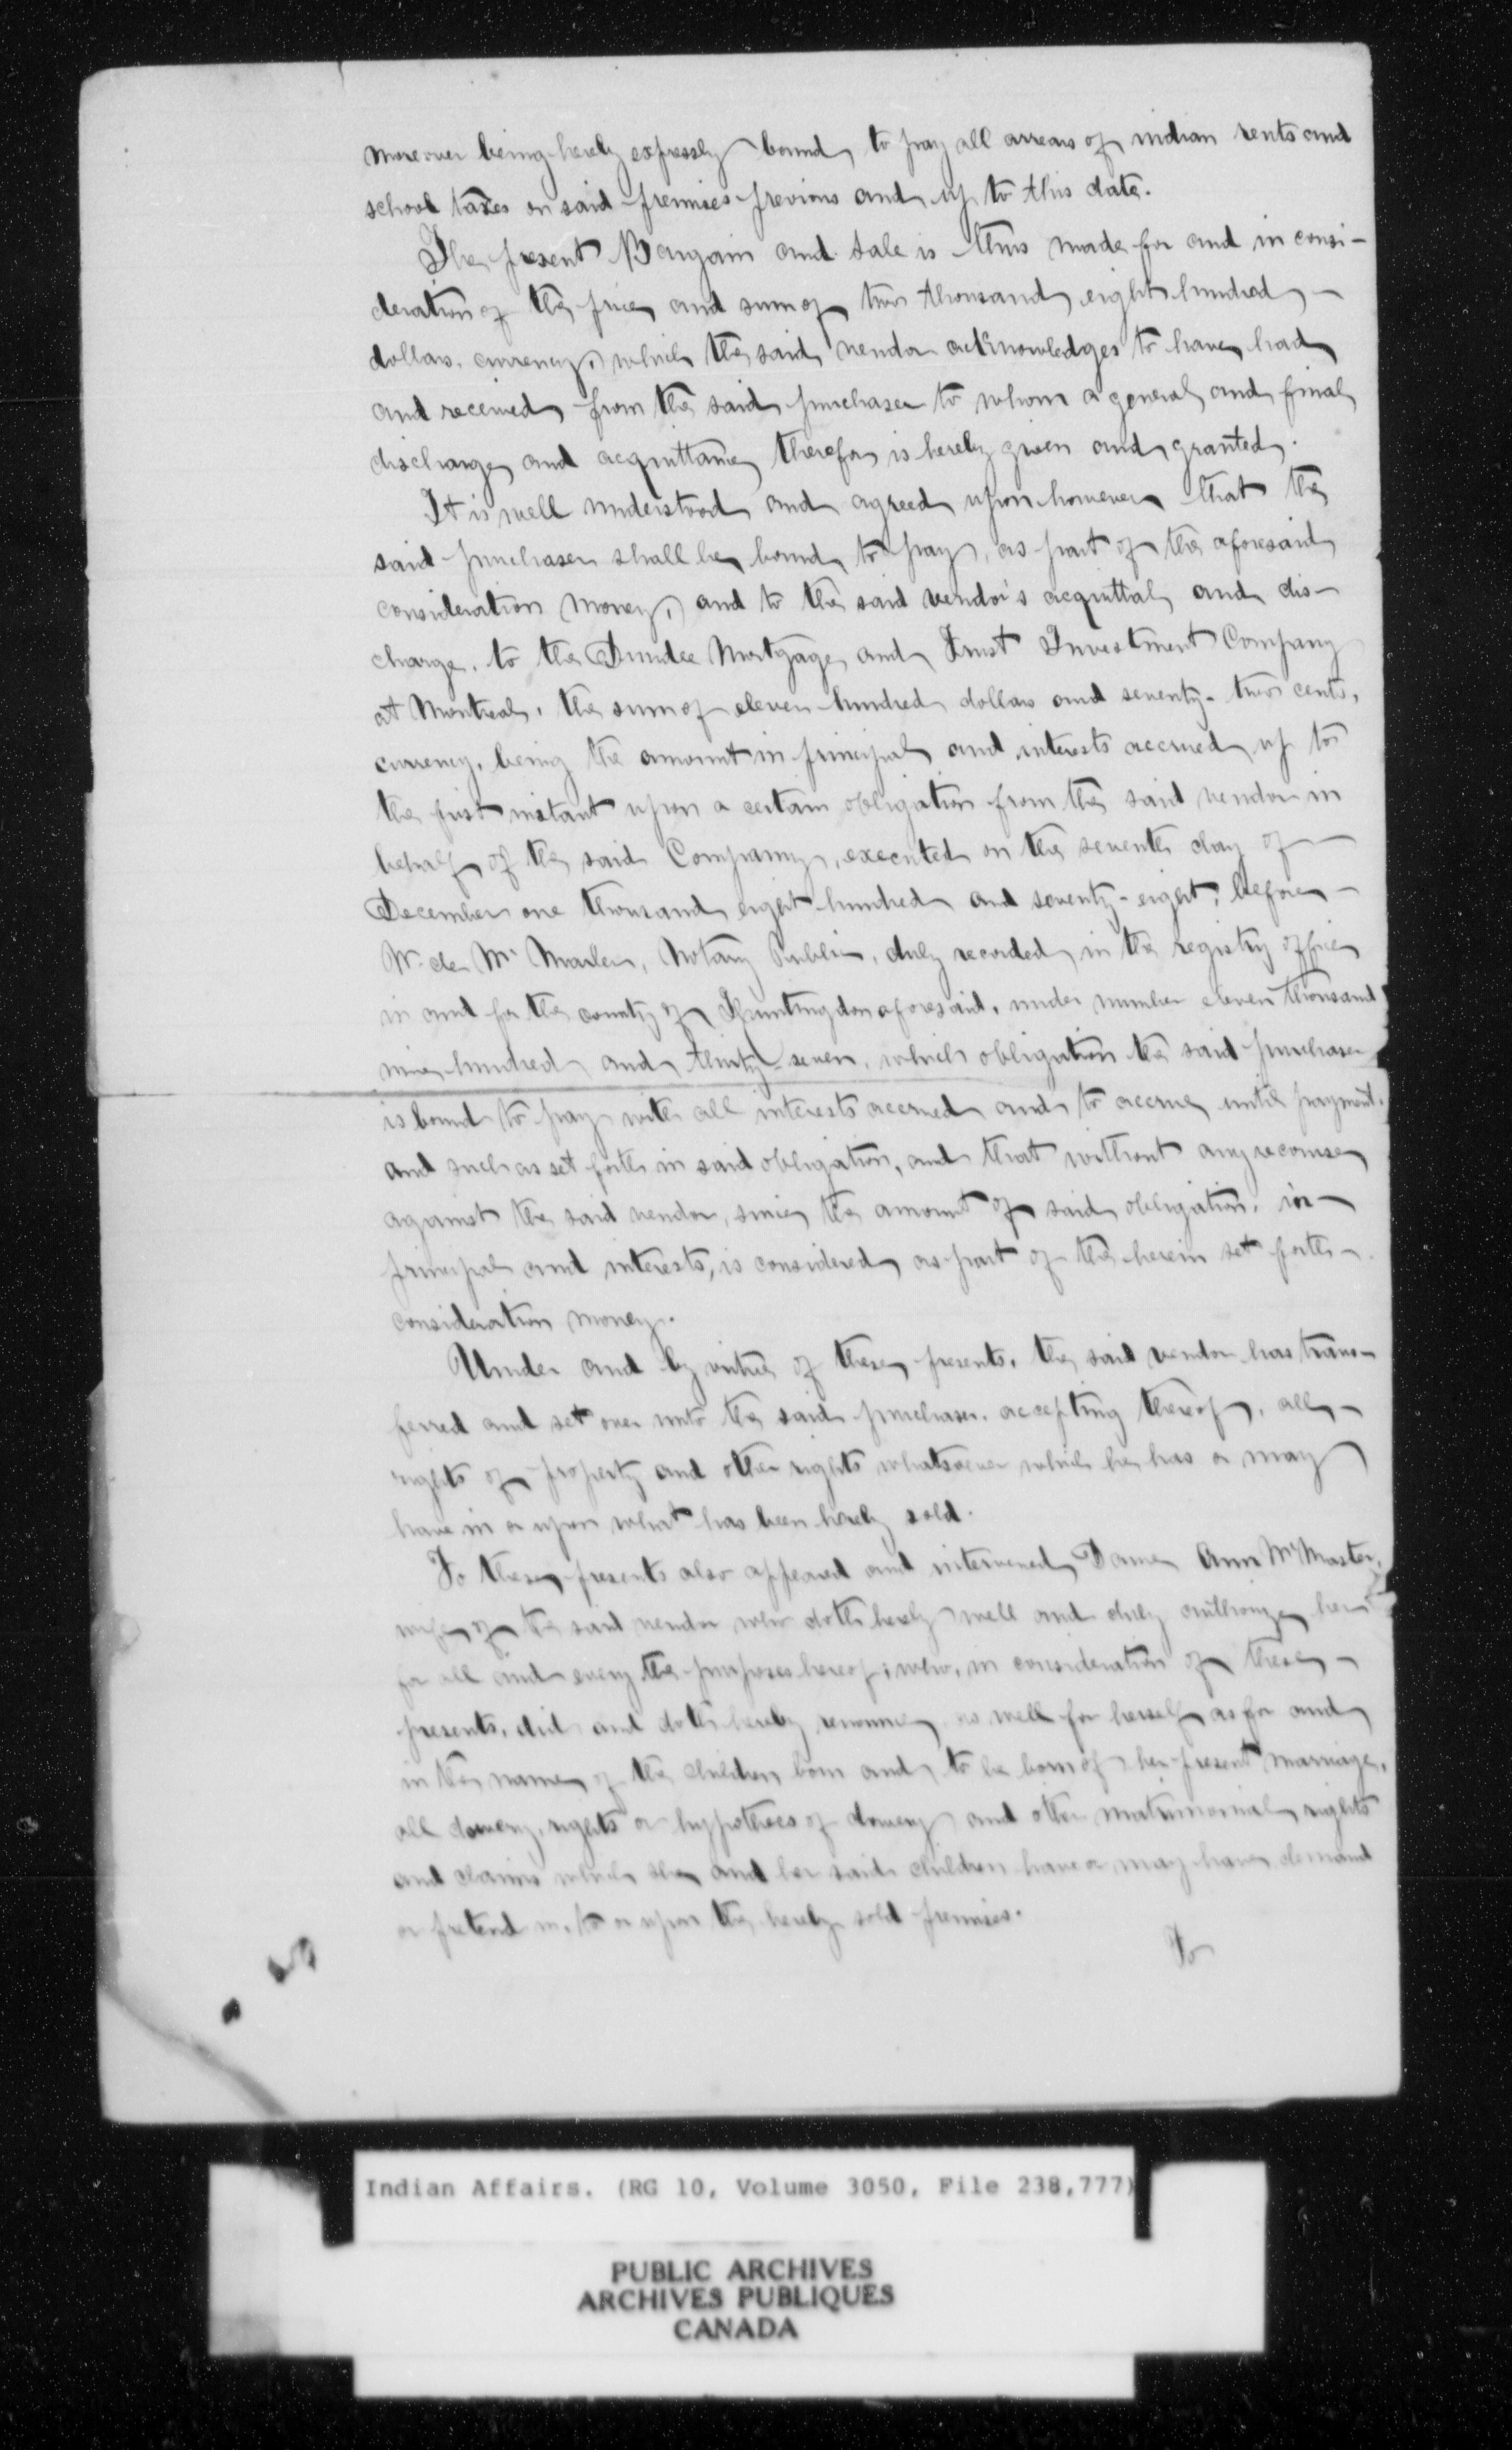 moreover being hereby expressly bound, to pay all arrears of indian rents and
school taxes on said premises previous and up to this date.
The present Bargain and sale is thus made for and in consi-
deration of the price and sum of two thousand eight hundred -
dollars, currency, which the said vendor acknowledges to have had
and received from the said purchaser to whom a general and final
discharge and acquittance therefor is hereby given and granted.
It is well understood and agreed upon however that the
said purchaser shall be bound to pay, as part of the aforesaid
consideration money, and to the said vendor's acquittal and dis-
charge, to the Dundee Mortgage and Trust Investment Company
at Montreal, the sum of eleven hundred dollars and seventy-two cents,
currency, being the amount in principal and interests accrued up to
the first instant upon a certain obligation from the said vendor in
behalf of the said Company, executed on the seventh day of -
December one thousand eight hundred and seventy-eight, before -
W. de M. Marler, Notary Public, duly recorded in the registry office
in and for the county of Huntingdon aforesaid, under number eleven thousand
nine hundred and thirty-seven, which obligation the said purchaser
is bound to pay with all interests accrued and to accrue until payment,
and such as set forth in said obligation, and that without any recourse
against the said vendor, since the amount of said obligation, in -
principal and interests, is considered as part of the herein set forth -
consideration money.
Under and by virtue of these presents, the said vendor has trans-
ferred and set over unto the said purchaser, accepting thereof, all -
rights of property and other rights whatsoever which he has or may
have in or upon what has been hereby sold.
To these presents also appeared and intervened Dame Ann McMaster,
wife of the said vendor who doth hereby well and duly authorize her
for all and every the purposes hereof; who, in consideration of these -
presents, did and doth hereby renounce, as well for herself as for and
in the name of the children born and to be born of her present marriage,
all dowery, rights or hypothecs of dowery and other matrimonial rights
and claims which she and her said children have or may have, demand
or pretend in, to or upon the hereby sold premises.
To
Indian Affairs. (RG 10, Volume 3050, File 238,777)
PUBLIC ARCHIVES
ARCHIVES PUBLIQUES
CANADA